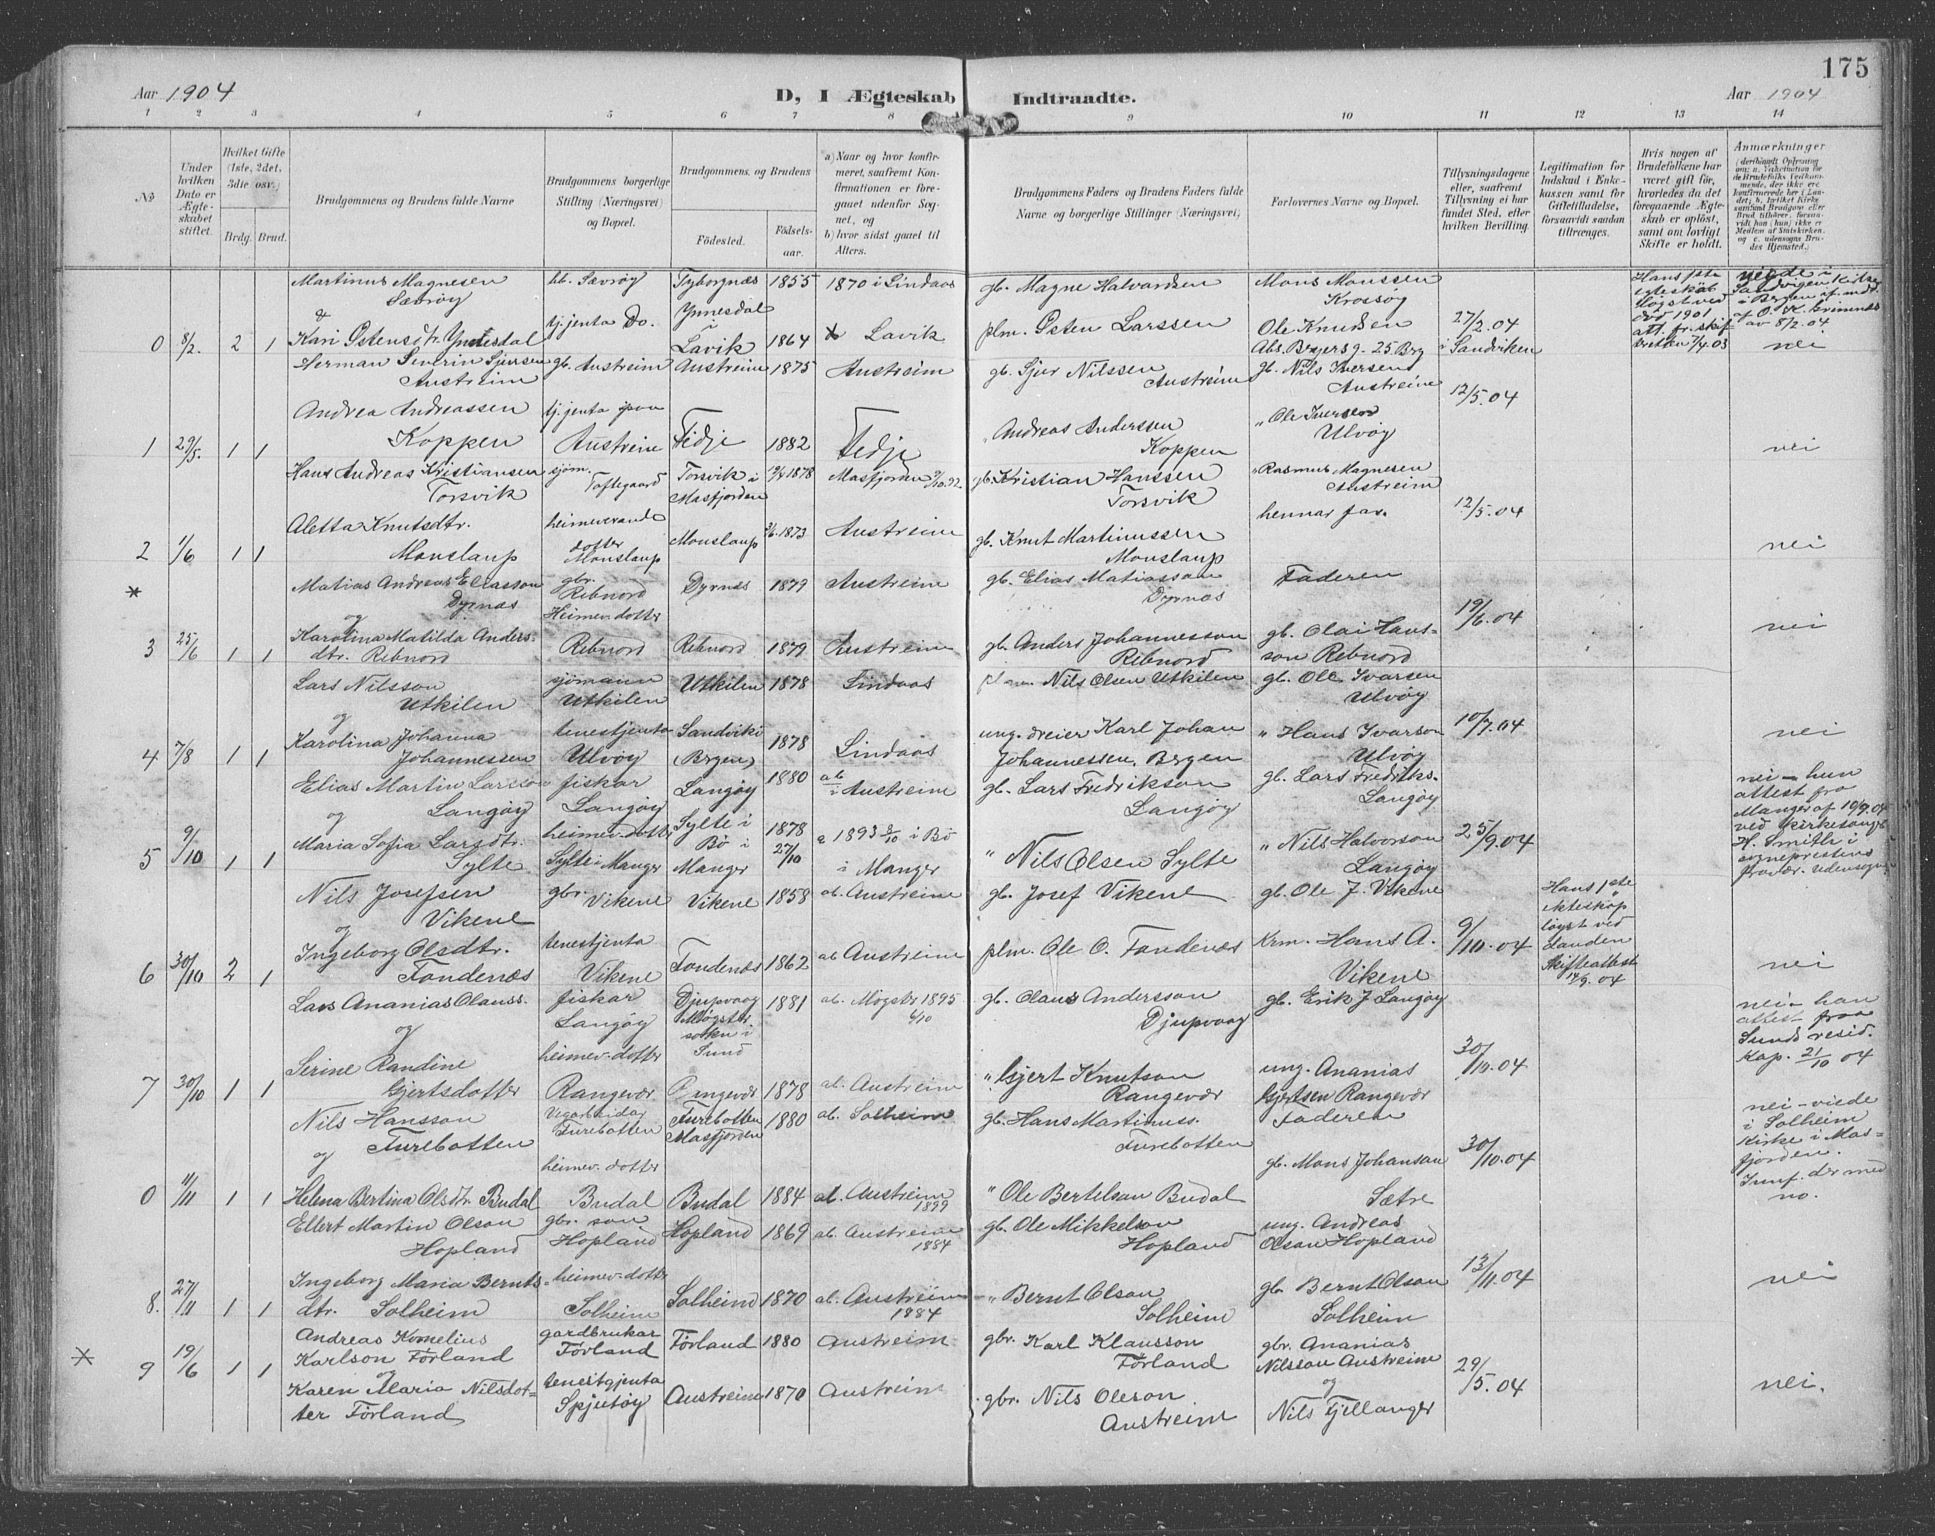 Aar 1904
D, I Ægteskab Indtraadte.
Aar 1904
175
1 2 3 4 5 6 7 8 9 10 11 12 13 14
No
Under hvilken Dato er Ægteskabet stiftet.
Hvilket Gifte (1ste, 2det, 3die osv.)
Brdg. Brud.
Brudgommens og Brudens fulde Navne
Brudgommens borgerlige Stilling (Næringsvei) og Bopæl.
Brudgommens, og Brudens
Fødested. Fødsels-aar.
a) Naar og hvor konfirmeret, saafremt Konfirmationen er foregaaet udenfor Sognet, og
b) hvor sidst gaaet til Alters.
Brudgommens Faders og Brudens Faders fulde Navne og borgerlige Stillinger (Næringsvei)
Forlovernes Navne og Bopæl.
Tillysningsdagene eller, saafremt Tillysning ei har fundet Sted, efter hvilken Bevilling.
Legitimation for Indskud i Enkekassen samt for Giftetilladelse, forsaavidt saadan tiltrænges.
Hvis nogen af Brudefolkene har været gift før, hvorledes da det foregaaende Ægteskab er opløst, samt om lovligt Skifte er holdt.
Anmærkninger
0 8/2. 2 1
Martinus Magnesen Sævrøy
&
Kari Østensdtr. Ynnesdal
hb. Sævrøy
tj.jenta Do.
Tyborgnæs 1855
Ynnesdal i Lavik 1864
1870 i Lindaas
Lavik
gb. Magne Halvardsen
plm. Østen Larssen
Mons Monssen Krossøy
Ole Knudsen
27/2.04 i Sandviken
Hans 1ste egteskab løgst ved død 1901
nei
1 29/5. 1 1
Herman Severin Sjursen Austreim
Andrea Andreassen Koppen
gb. Austreim
tj.jenta paa Austreim
Austreim 1875
Fedje 1882
Austreim
Fedje
gb. Sjur Nilssen Austreim
" Andreas Anderssen Koppen
gb. Nils Iversen Austreim
" Ole Iverson Ulvøy
12/5.04
nei
2 1/6 1 1
Hans Andreas Kristiansen Torsvik
Aletta Knutsdtr. Monslaup
sjøm. Toftegaard
heimeverande dotter Monslaup
Torsvik i Masfjorden 1878
Monslaup 1873
Masfjorden
Austreim
gb. Kristian Hanssen Torsvik
gb. Knut Martinussen Monslaup
" Rasmus Magnesen Austreim
hennar far.
12/5.04
nei
*
3 25/6 1 1
Matias Andreas Eliasson Dyrnæs
og
Karolina Matilda Andersdtr. Rebnord
gbr. Rebnord
Heimev. dotter Rebnord
Dyrnæs 1879
Rebnord 1879
Austreim
Austreim
gb. Elias Matiasson Dyrnæs
gb. Anders Johannesson Rebnord
Faderen
gb. Olai Hansson Rebnord
19/6.04
nei
4 7/8 1 1
Lars Nilsson Utkilen
og
Karolina Johanna Johannessen
sjømann Utkilen
tenestjenta Ulvøy
Utkilen 1878
Sandvik i (Bergen) 1878
Lindaas
Lindaas
Nils Olsen Utkilen
ung. dreier Karl Johan Johannessen, Bergen
gb. Ole Ivarsen Ulvøy
" Hans Ivarson Ulvøy
10/7.04
nei
5 9/10 1 1
Elias Martin Larsson Langøy
og
Maria Sofia Larsdtr. Sylte
fiskar Langøy
heimev. dotter Sylte i Manger
Langøy 1880
Sylte i Bø i Manger 1878 27/10
ab i Austreim
a 1893 8/10 i Bø i Manger
gb. Lars Fredrikson Langøy
" Nils Olsen Sylte
gb. Lars Fredriks. Langøy
" Nils Halvorson Langøy
25/9.04
nei – hun attest fra Manger af 10/9.04 ved kirkesanger H. Smith i sogneprestens fravær. Udensogn
6 30/10 2 1
Nils Josefsen Vikene
og
Ingeborg Olsdtr. Fondenæs
gbr. Vikene
tenestjenta Vikene
Vikene 1858
Fondenæs 1862
ab. Austreim
ab Austreim
gb. Josef Vikene
plm. Ole O. Fondenæs
gb. Ole J. Vikene
Krm. Hans A. Vikene
9/10.04
Hans 1ste Ækteskap løyst ved dauden Skifteattest 14/9.04
nei
7 30/10 1 1
Lars Ananias Olauss.
og
Serine Randine Gjertsdotter
fiskar Langøy
heimev. dotter Rangevær
Djupvaag Møgster sokn i Sund 1881
Rangevær 1878
ab. Møgstr 1895 6/10
ab. Austreim
gb. Olaus Andersson Djupvaag
" Gjert Knutson Rangevær
gb. Erik J Langøy
ung. Ananias Gjertsen Rangevær
30/10.04
nei – han attest fraa Sunds resid. Kap. 21/10 04
0 11/11 1 1
Nils Hansson Furebotten
og
Helena Bertina Olsdtr. Budal
Vegarbeidar Furebotten
heimev. dotter Budal
Furebotten Masfjorden 1880
Budal 1884
ab. Solheim
ab. Austreim 1899
gb. Hans Martinuss. Furebotten
" Ole Bertelson Budal
Faderen
gb. Mons Johanson Sætre
30/10.04
nei – viede i Solheim Kirke i Masfjorden. Innf. der med no.
8. 27/11 1 1
Ellert Martin Olson Hopland
Ingeborg Maria Berntsdtr. Solheim
gbr. son Hopland
heimev. dotter Solheim
Hopland 1869
Solheim 1870
ab. Austreim 1884
ab. Austreim 1884
gb. Ole Mikkelson Hopland
" Bernt Olson Solheim
ung. Andreas Olson Hopland
gb. Bernt Olson Solheim
13/11.04
nei
*
9 19/6 1 1
Andreas Kornelius Karlson Førland
og
Karen Maria Nilsdotter Førland
gardbrukar Førland
tenestgjenta Spjutøy
Førland 1880
Austreim 1870
Austreim
Austreim
gbr. Karl Klausson Førland
gbr. Nils Oleson Austreim
gbr. Ananias Nilsson Austreim
og
Nils Fjellanger
29/5.04
nei.